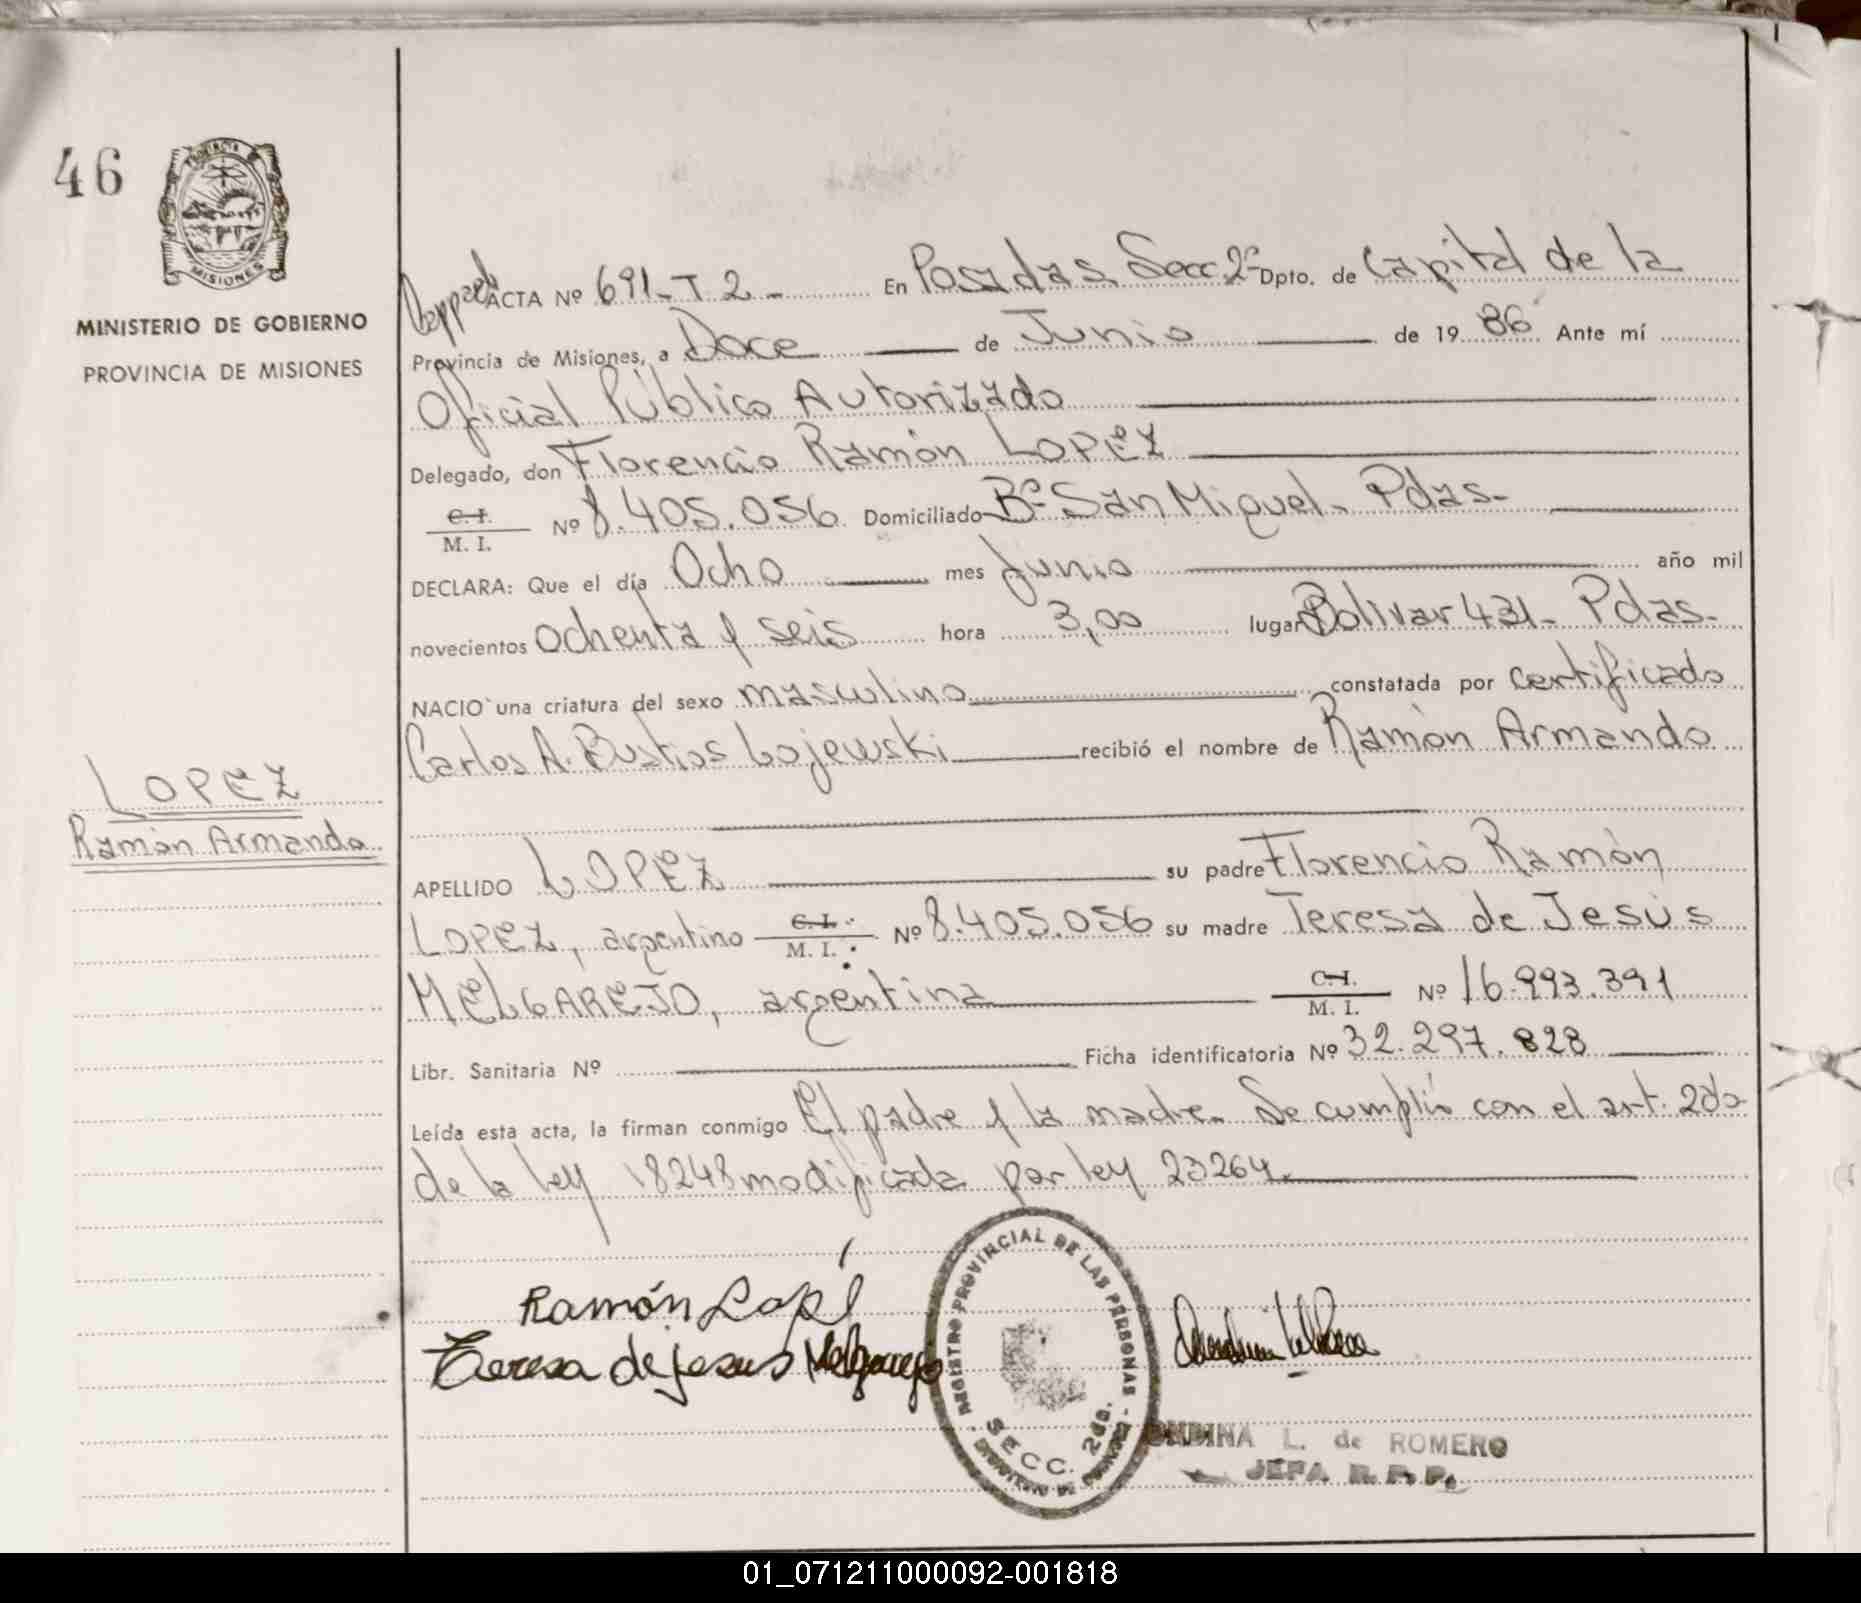 46
PROVINCIA DE
MISIONES
MINISTERIO DE GOBIERNO
PROVINCIA DE MISIONES
LOPEZ
Ramón Armando
ACTA Nº 691-T 2- En Posadas Secc 2ª Dpto. de Capital de la
Provincia de Misiones, a Doce de Junio de 1986 Ante mí
Oficial Público Autorizado
Delegado, don Florencio Ramón LOPEZ
C.I. / M. I. Nº 8.405.056 Domiciliado Bº San Miguel- Pdas-
DECLARA: Que el día Ocho mes Junio año mil
novecientos ochenta y seis hora 3,00 lugar Bolivar 431- Pdas-
NACIO una criatura del sexo masculino constatada por certificado
Carlos A. Bustios Lojewski recibió el nombre de Ramón Armando
APELLIDO LOPEZ su padre Florencio Ramón
LOPEZ, argentino C.I. / M. I. Nº 8.405.056 su madre Teresa de Jesús
MELGAREJO, argentina C.I. / M. I. Nº 16.993.391
Libr. Sanitaria Nº Ficha identificatoria Nº 32.297.828
Leída esta acta, la firman conmigo El padre y la madre. Se cumplió con el art. 2do
de la ley 18248 modificada por ley 23264.
Ramón Lopé
Teresa de jesus Melgarejo
REGISTRO PROVINCIAL DE LAS PERSONAS
SECC. 2da.
ONDINA L. de ROMERO
JEFA R. P. P.
01_071211000092-001818